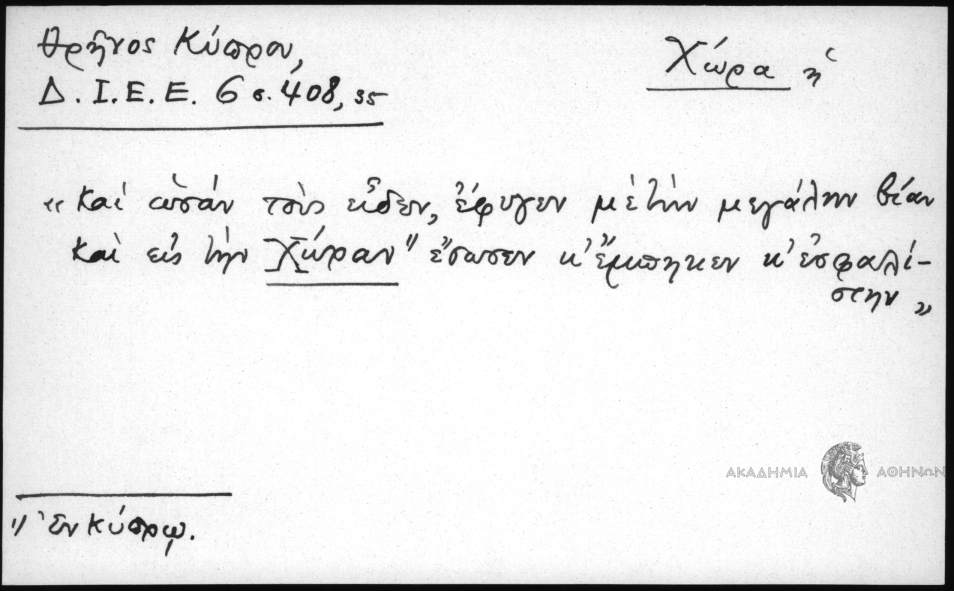 Θρῆνος Κύπρου,
Δ. Ι. Ε. Ε. 6 σ. 408, 35
Χώρα ἡ
« Καὶ ὡσὰν τοὺς εἶδεν, ἔφυγεν μὲ τὴν μεγάλην βίαν
καὶ εἰς τὴν Χώραν 1) ἔσωσεν κ' ἔμπηκεν κ' ἐσφαλί-
στην »
ΑΚΑΔΗΜΙΑ ΑΘΗΝΩΝ
1) Ἐν Κύπρῳ.